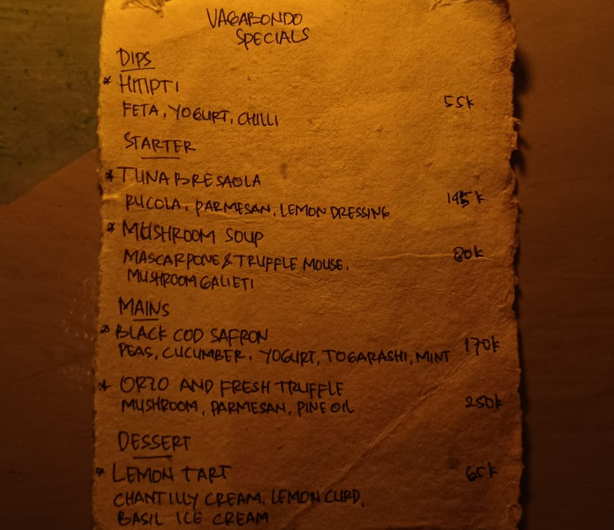 VAGABONDO
SPECIALS
DIPS
* HTIPTI
FETA, YOGURT, CHILLI 55k
STARTER
* TUNA BRESAOLA
RUCOLA, PARMESAN, LEMON DRESSING 145k
* MUSHROOM SOUP
MASCARPONE & TRUFFLE MOUSE, 80k
MUSHROOM GALIETI
MAINS
* BLACK COD SAFRON
PEAS, CUCUMBER, YOGURT, TOGARASHI, MINT 170k
* ORZO AND FRESH TRUFFLE
MUSHROOM, PARMESAN, PINE OIL 250k
DESSERT
* LEMON TART 65k
CHANTILLY CREAM, LEMON CURD,
BASIL ICE CREAM